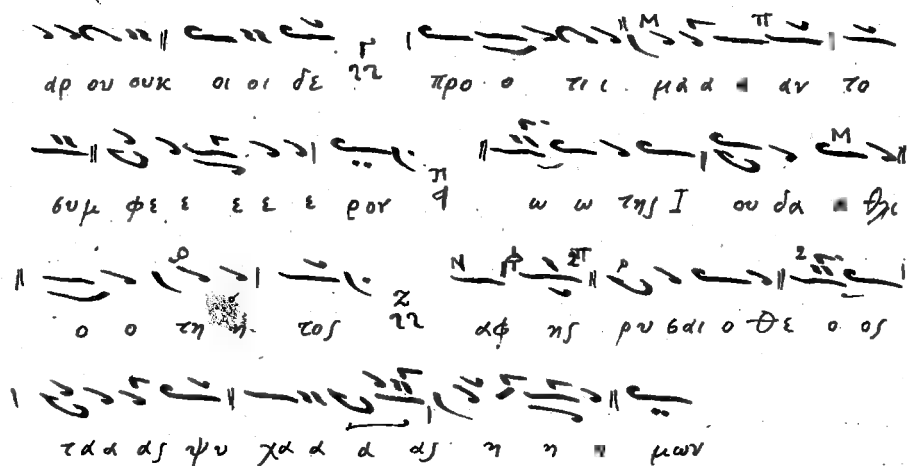 αρ ου ουκ οι οι δε προ ο τι ι μα α α αν το
συμ φε ε ε ε ε ρον ω ω της Ι ου δα α θλι
ο ο τη η τος αφ ης ρυ σαι ο Θε ο ος
τα α ας ψυ χα α α ας η η η μων